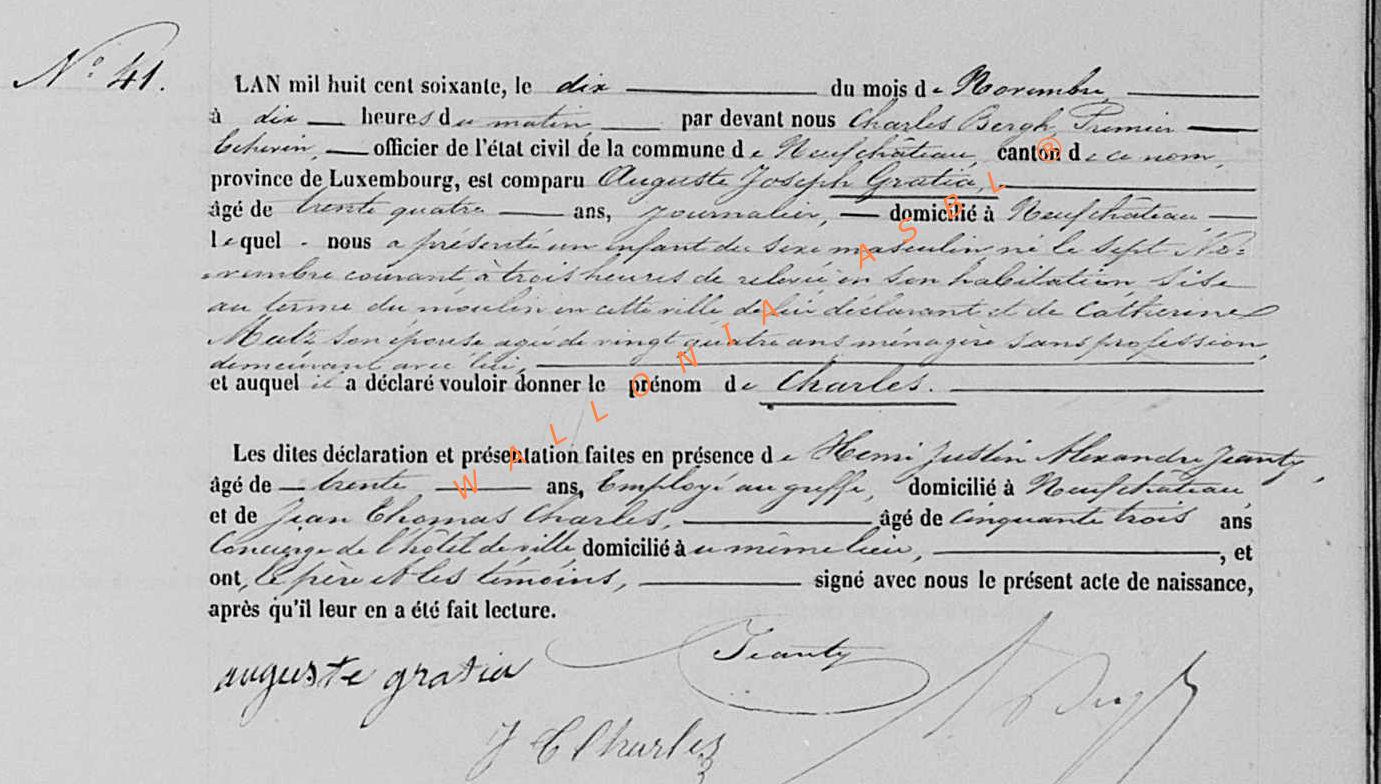 N° 41.
LAN mil huit cent soixante, le dix du mois de Novembre
à dix heures du matin, par devant nous Charles Bergh, Premier
Echevin, officier de l'état civil de la commune de Neufchâteau, canton de ce nom,
province de Luxembourg, est comparu Auguste Joseph Gratia,
âgé de trente quatre ans, journalier, domicilié à Neufchâteau,
lequel nous a présenté un enfant du sexe masculin né le sept No=
vembre courant à trois heures de relevée en son habitation sise
au terme du moulin en cette ville de lui déclarant et de Catherine
Mutz son épouse agée de vingt quatre ans ménagère sans profession,
demeurant avec lui,
et auquel il a déclaré vouloir donner le prénom de Charles.
Les dites déclaration et présentation faites en présence de Henri Justin Alexandre Jeanty,
âgé de trente ans, Employé au greffe, domicilié à Neufchâteau
et de Jean Thomas Charles, âgé de cinquante trois ans
Concierge de l'hôtel de ville domicilié à u même lieu, , et
ont, le père et les témoins, signé avec nous le présent acte de naissance,
après qu'il leur en a été fait lecture.
auguste gratia
Jeanty
J C Charles
WALLONIA ASBL ®